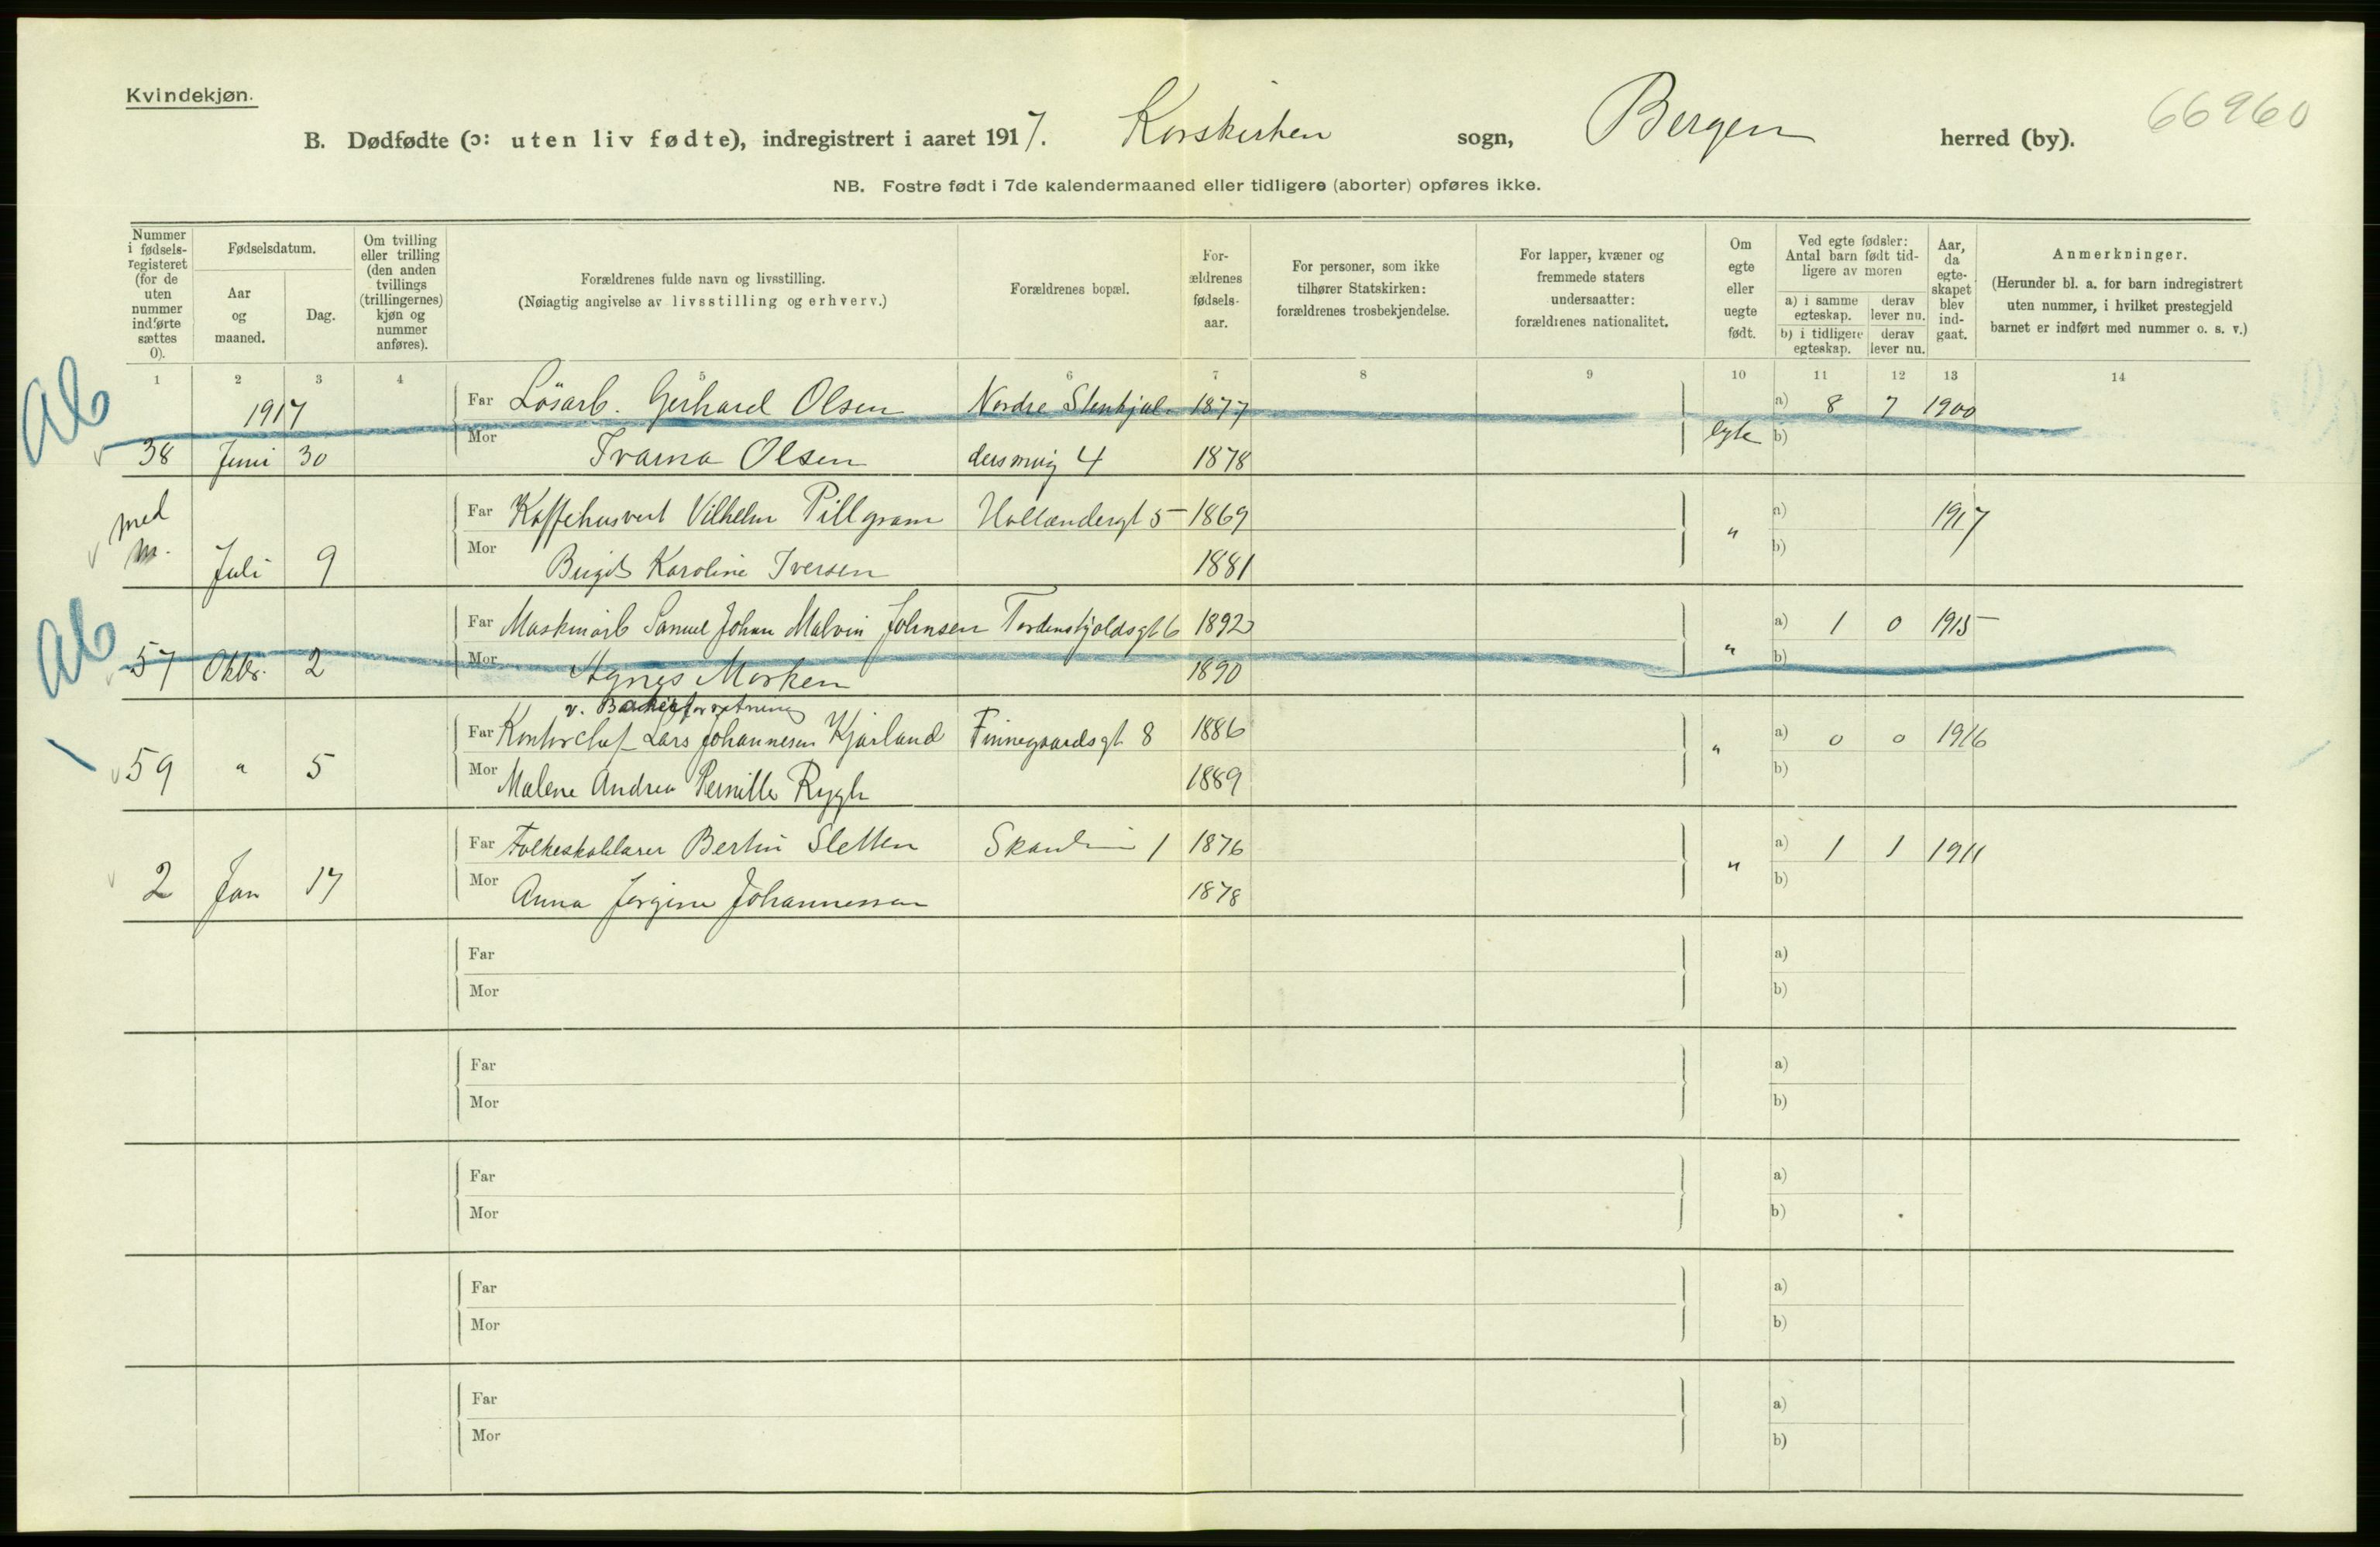 Kvindekjøn.
66960
B. Dødfødte (ɔ: uten liv fødte), indregistrert i aaret 1917. Korskirken sogn, Bergen herred (by).
NB. Fostre født i 7de kalendermaaned eller tidligere (aborter) opføres ikke.
Nummer i fødsels-registeret (for de uten nummer indførte sættes 0).
Fødselsdatum.
Aar og maaned.
Dag.
Om tvilling eller trilling (den anden tvillings (trillingernes) kjøn og nummer anføres).
Forældrenes fulde navn og livsstilling.
(Nøiagtig angivelse av livsstilling og erhverv.)
Forældrenes bopæl.
For-ældrenes fødsels-aar.
For personer, som ikke tilhører Statskirken: forældrenes trosbekjendelse.
For lapper, kvæner og fremmede staters undersaatter: forældrenes nationalitet.
Om egte eller uegte født.
Ved egte fødsler: Antal barn født tid-ligere av moren
a) i samme egteskap. derav lever nu.
b) i tidligere egteskap. derav lever nu.
Aar, da egte-skapet blev ind-gaat.
Anmerkninger.
(Herunder bl. a. for barn indregistrert uten nummer, i hvilket prestegjeld barnet er indført med nummer o. s. v.)
1 2 3 4 5 6 7 8 9 10 11 12 13 14
Ab
1917 Far Løsarb. Gerhard Olsen Nordre 1877 a) 8 7 1900
38 Juni 30 Mor Ivarna Olsen 4 1878 egte b)
med m.
Far Kaffehusvert Vilhelm Pillgram Hollændergt 5 1869 " a) 1917
Juli 9 Mor Birgit Karoline Iversen 1881 b)
Ab
Far Maskinarb Samuel Johan Malvin Johnsen Tordenskjoldsgt 6 1892 a) 1 0 1915
57 Oktbr. 2 Mor Agnes Morken 1890 " b)
v.
Far Kontorchef Lars Johannesen Kjarland Finnegaardsgt 8 1886 " a) 0 0 1916
59 " 5 Mor Malene Andrea Pernille Rygh 1889 b)
Far Folkeskolelærer Bertin Sletten 1 1876 " a) 1 1 1911
2 Jan 17 Mor Anna Jørgine Johannessen 1878 b)
Far a)
Mor b)
Far a)
Mor b)
Far a)
Mor b)
Far a)
Mor b)
Far a)
Mor b)